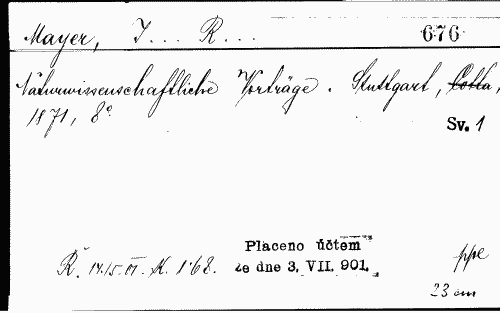 Mayer, J... R...
676
Naturwissenschaftliche Vorträge. Stuttgart, Cotta,
1871, 8°
Sv. 1
Placeno účtem
ze dne 3. VII. 901.
Ř. 14.15.01. K. 1·68.
ppe
23 cm